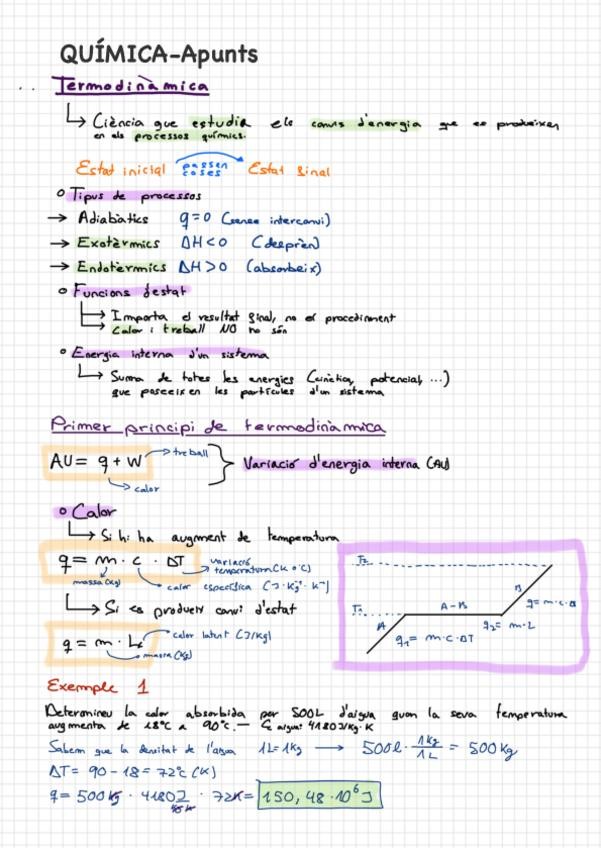 QUÍMICA-Apunts
Termodinàmica
↳ Ciència que estudia els canvis d'energia que es produeixen
en els processos químics.
Estat inicial passen coses Estat final
o Tipus de processos
→ Adiabàtics q=0 (sense intercanvi)
→ Exotèrmics ΔH<0 (desprèn)
→ Endotèrmics ΔH>0 (absorbeix)
o Funcions d'estat
↳ Importa el resultat final, no el procediment
↳ Calor i treball NO ho són
o Energia interna d'un sistema
↳ Suma de totes les energies (cinètica, potencial, ...)
que posseeixen les partícules d'un sistema
Primer principi de termodinàmica
ΔU = q + W → treball
→ calor
Variació d'energia interna (ΔU)
o Calor
↳ Si hi ha augment de temperatura
q = m · c · ΔT
variació temperatura (K o ºC)
massa (kg)
calor específica (J·Kg⁻¹·K⁻¹)
↳ Si es produeix canvi d'estat
q = m · L
calor latent (J/Kg)
massa (Kg)
T₂
T₁
A
A-B
B
q₁= m·c·ΔT
q₂= m·L
Exemple 1
Determineu la calor absorbida per 500L d'aigua quan la seva temperatura
augmenta de 18ºC a 90ºC. — Ce aigua: 4180J/Kg·K
Sabem que la densitat de l'aigua 1L=1Kg → 500l · 1Kg/1L = 500Kg
ΔT = 90 - 18 = 72ºC (K)
q = 500Kg · 4180J/Kg·K · 72K = 150,48·10⁶J